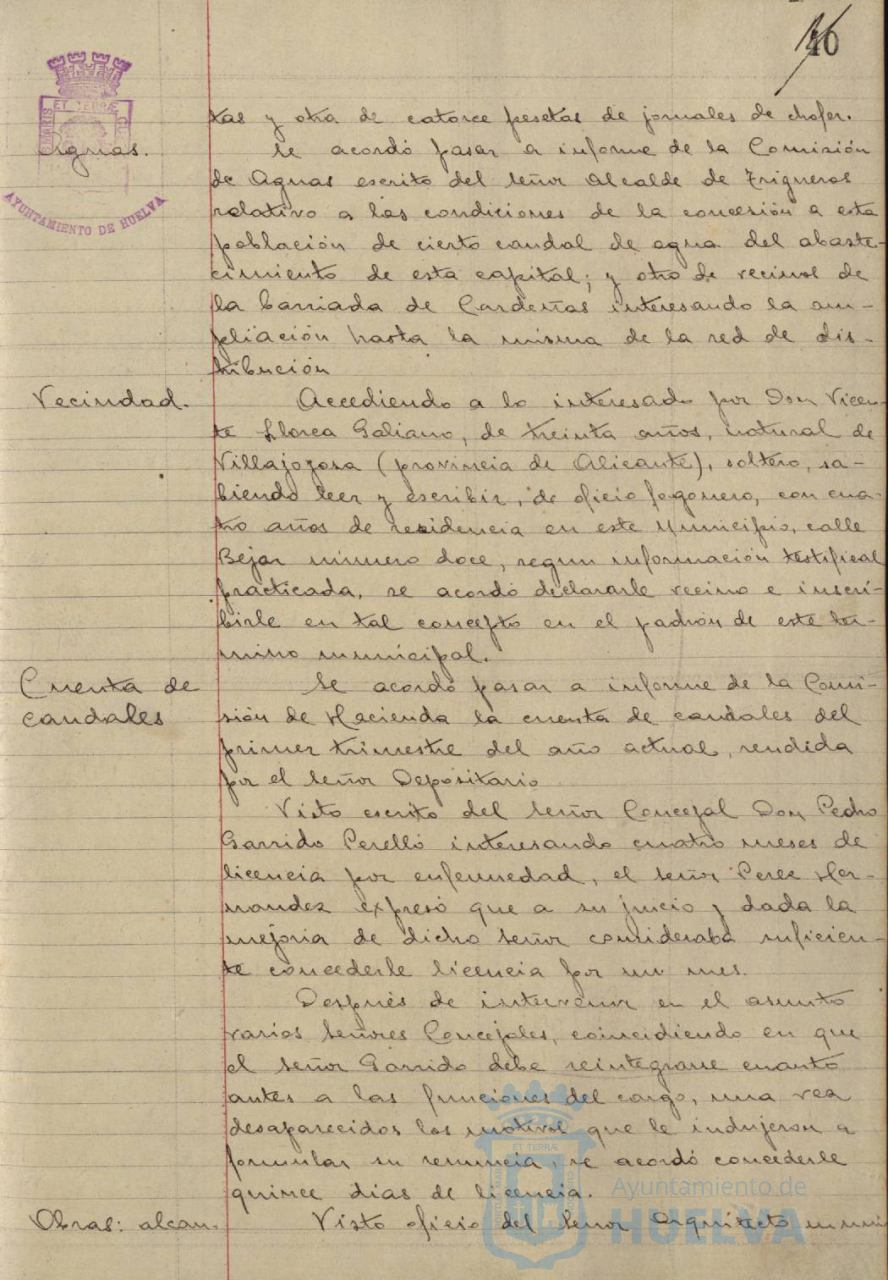 40
tas y otra de catorce pesetas de jornales de chofer.
Aguas. Se acordó pasar a informe de la Comisión
de Aguas escrito del Señor Alcalde de Trigueros
relativo a las condiciones de la concesión a esta
población de cierto caudal de agua del abaste-
cimiento de esta capital; y otro de vecinos de
la barriada de Cardeñas interesando la am-
pliación hasta la misma de la red de dis-
tribución
Vecindad. Accediendo a lo interesado por Don Vicen-
te Llorca Galiano, de treinta años, natural de
Villajoyosa (provincia de Alicante), soltero, sa-
biendo leer y escribir, de oficio fogonero, con cua-
tro años de residencia en este Municipio, calle
Bejar número doce, segun información testifical
practicada, se acordó declararle vecino e inscri-
birle en tal concepto en el padrón de este ter-
mino municipal.
Cuenta de Se acordó pasar a informe de la Comi-
caudales sión de Hacienda la cuenta de caudales del
primer trimestre del año actual, rendida
por el Señor Depositario
Visto escrito del Señor Concejal Don Pedro
Garrido Perelló interesando cuatro meses de
licencia por enfermedad, el señor Perez Her-
nandez expresó que a su juicio y dada la
mejoria de dicho Señor consideraba suficien-
te concederle licencia por un mes.
Después de intervenir en el asunto
varios Señores Concejales, coincidiendo en que
el Señor Garrido debe reintegrarse cuanto
antes a las funciones del cargo, una vez
desaparecidos los motivos que le indujeron a
formular su renuncia, se acordó concederle
quince dias de licencia.
Obras: alcan. Visto oficio del Señor Arquitecto muni
ET TERRÆ
AYUNTAMIENTO DE HUELVA
ET TERRÆ
Ayuntamiento de
HUELVA